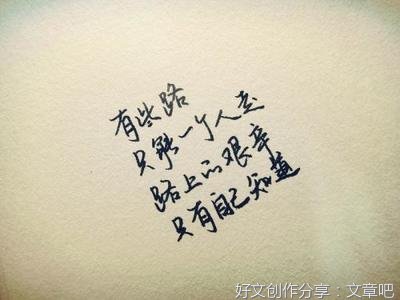 有些路
只能一个人走
路上的艰辛
只有自己知道
好文创作分享：文章吧